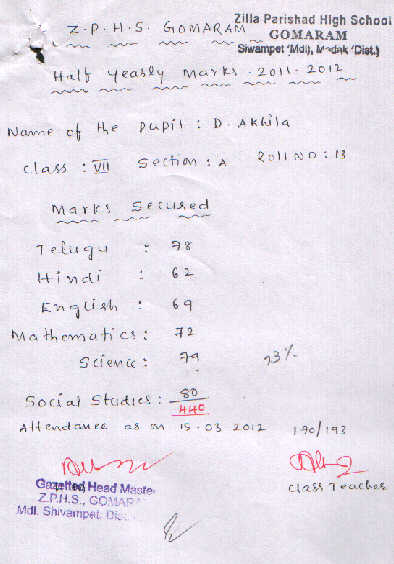 Z.P.H.S. GOMARAM
Zilla Parishad High School
GOMARAM
Siwampet (Mdl), Medak (Dist.)
Half yearly marks - 2011 - 2012
Name of the pupil : D. Akhila
Class : VII Section : A Roll NO : 13
Marks Secured
Telugu : 78
Hindi : 62
English : 69
Mathematics : 72
Science : 79 73%
Social Studies : 80
440
Attendance as on 15-03 2012 190/193
Gazetted Head Master
Z.P.H.S., GOMARA
Mdl. Shivampet, Dis
Class Teacher